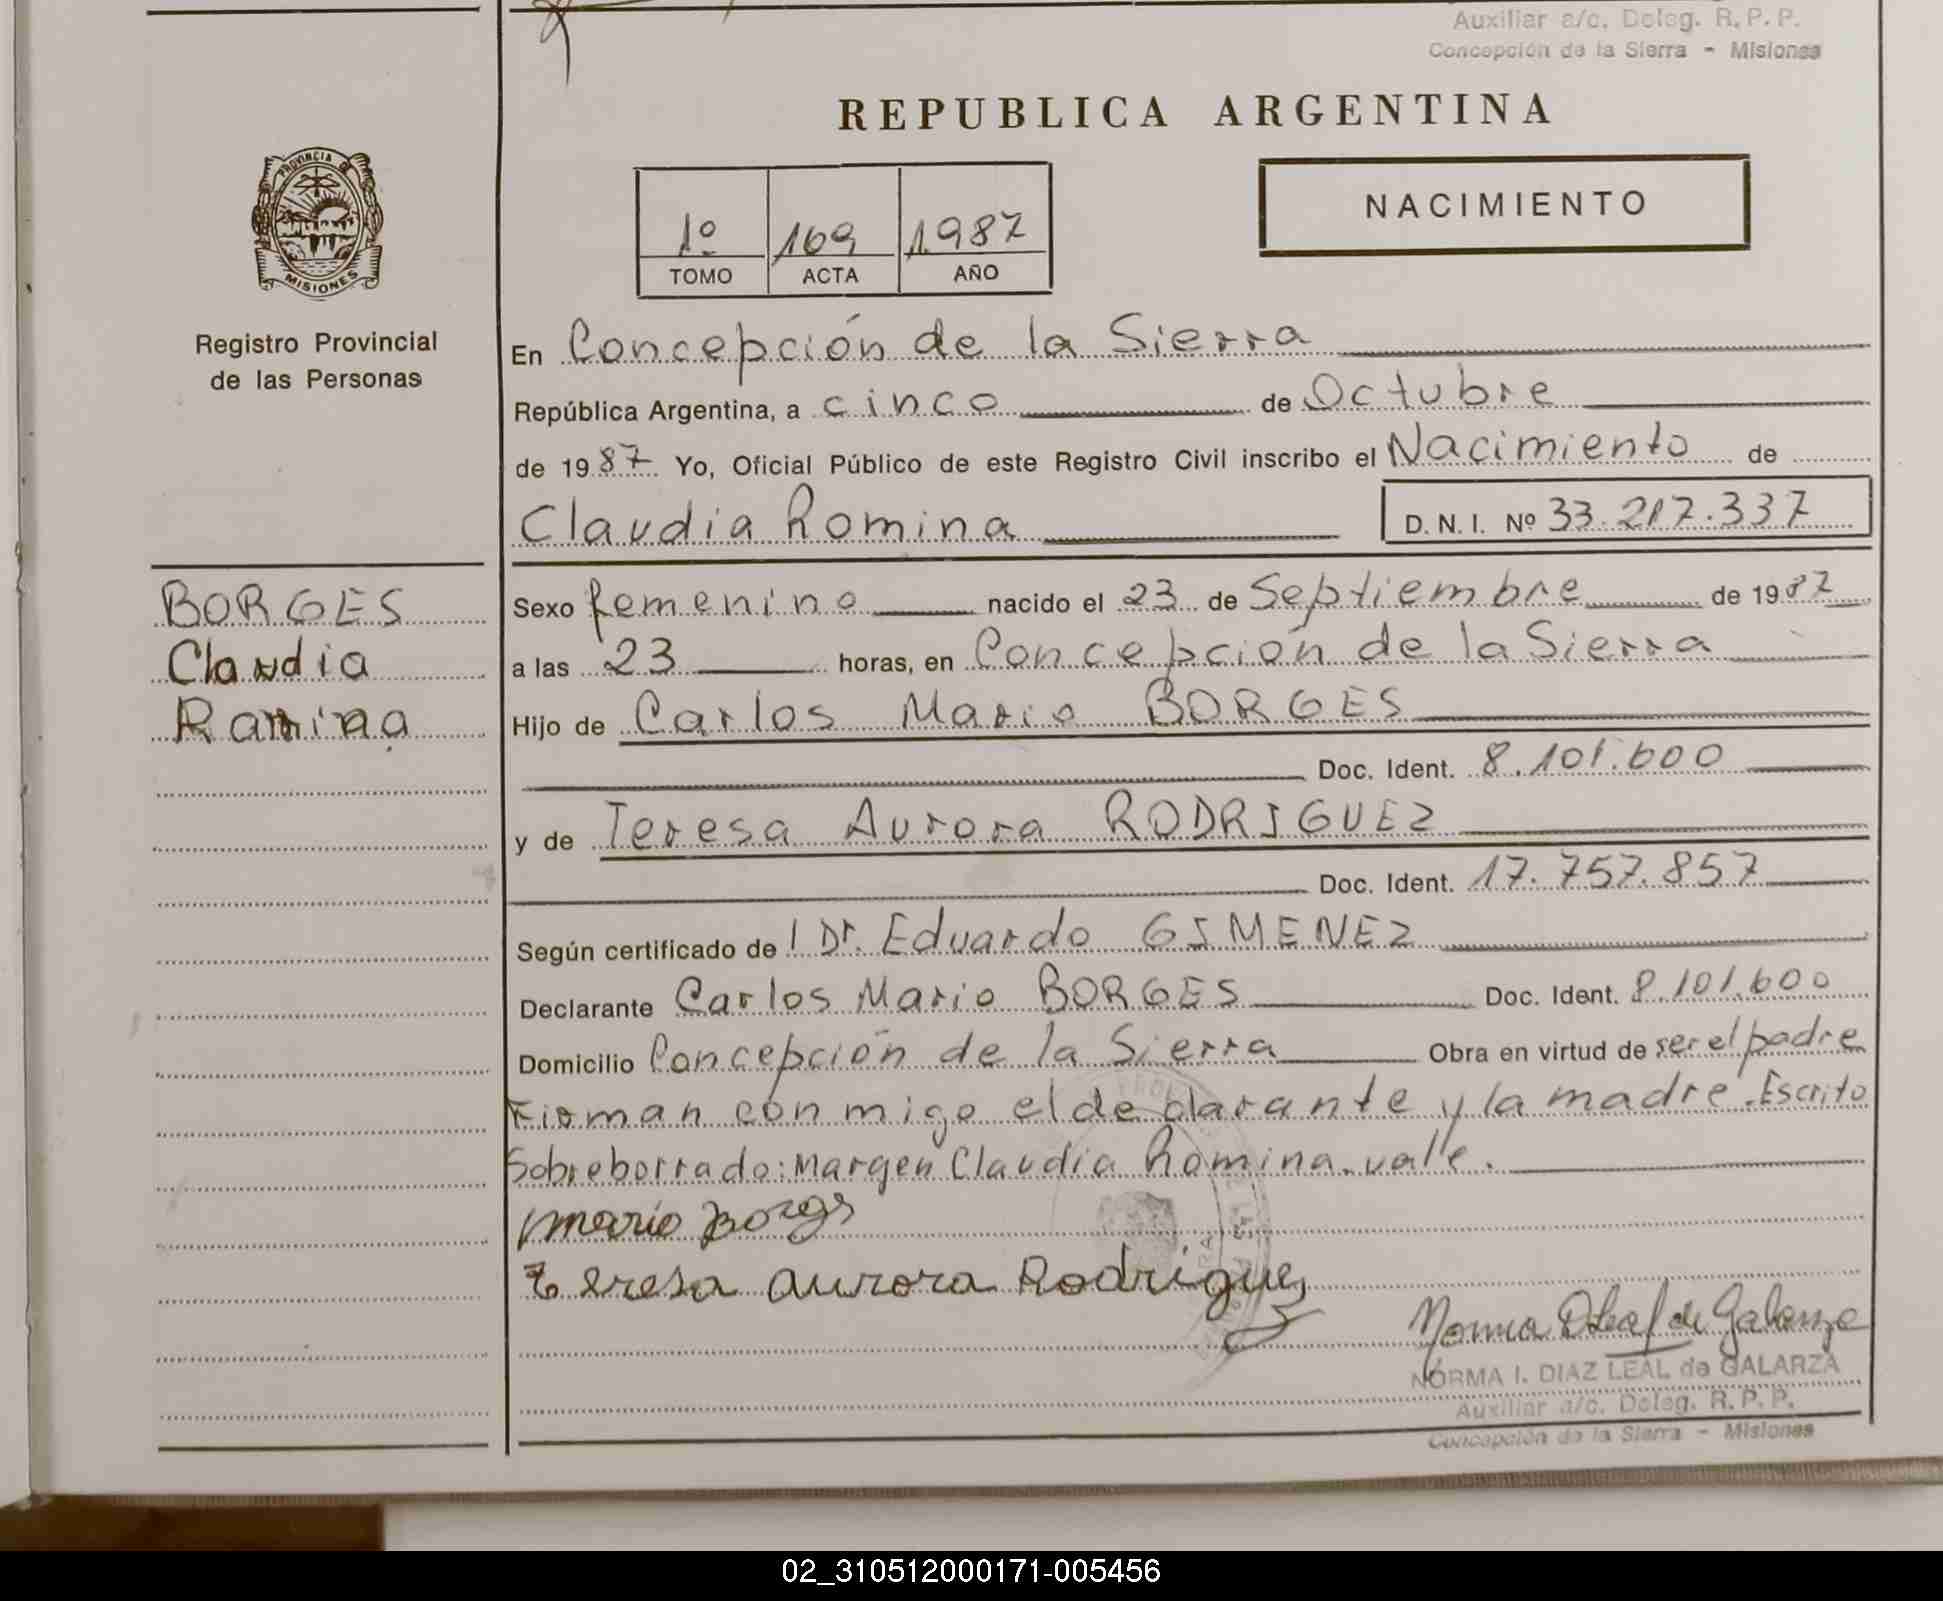 Auxiliar a/c. Deleg. R. P. P.
Concepción de la Sierra - Misiones
REPUBLICA ARGENTINA
PROVINCIA DE
MISIONES
Registro Provincial
de las Personas
1º 169 1987
TOMO ACTA AÑO
NACIMIENTO
En Concepción de la Sierra
República Argentina, a cinco de Octubre
de 1987 Yo, Oficial Público de este Registro Civil inscribo el Nacimiento de
Claudia Romina D. N. I. Nº 33.217.337
BORGES
Claudia
Romina
Sexo femenino nacido el 23 de Septiembre de 1987
a las 23 horas, en Concepción de la Sierra
Hijo de Carlos Mario BORGES
Doc. Ident. 8.101.600
y de Teresa Aurora RODRIGUEZ
Doc. Ident. 17.757.857
Según certificado de Dr. Eduardo GIMENEZ
Declarante Carlos Mario BORGES Doc. Ident. 8.101.600
Domicilio Concepción de la Sierra Obra en virtud de ser el padre
Firman conmigo el declarante y la madre. Escrito
Sobreborrado: Margen Claudia Romina. valle.
Mario Borges
Teresa Aurora Rodriguez
Norma D Leal de Galarza
NORMA I. DIAZ LEAL de GALARZA
Auxiliar a/c. Deleg. R. P. P.
Concepción de la Sierra - Misiones
02_310512000171-005456